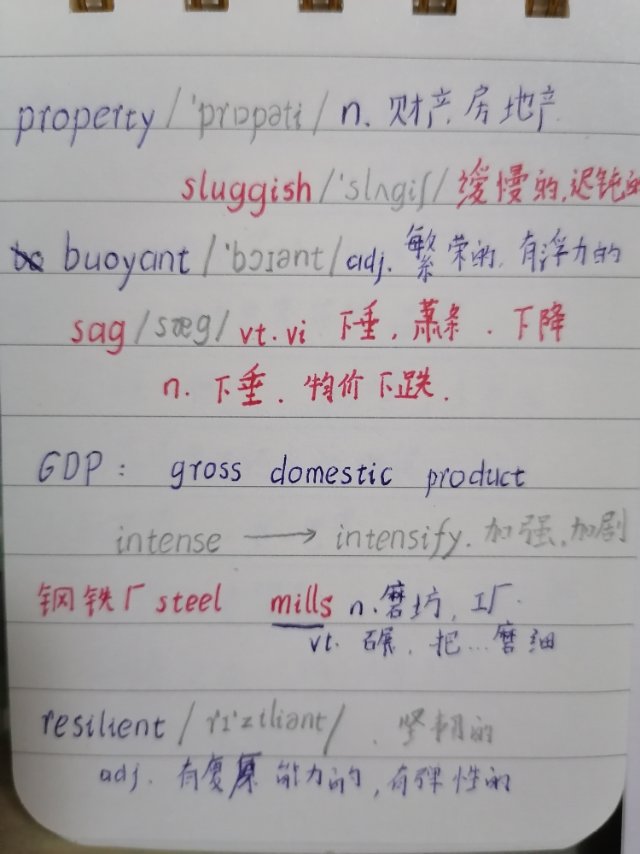 property /'prɒpəti/ n. 财产 房地产
sluggish /'slʌgiʃ/ 缓慢的,迟钝的
buoyant /'bɔɪənt/ adj. 繁荣的,有浮力的
sag /sæg/ vt. vi 下垂,萧条.下降
n. 下垂.物价下跌.
GDP: gross domestic product
intense → intensify. 加强,加剧
钢铁厂 steel mills n. 磨坊,工厂.
vt. 碾,把...磨细
resilient /rɪ'zɪliənt/ . 坚韧的
adj. 有复原能力的,有弹性的